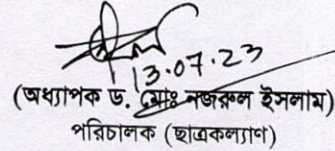 13.07.23
(অধ্যাপক ড. মোঃ নজরুল ইসলাম)
পরিচালক (ছাত্রকল্যাণ)